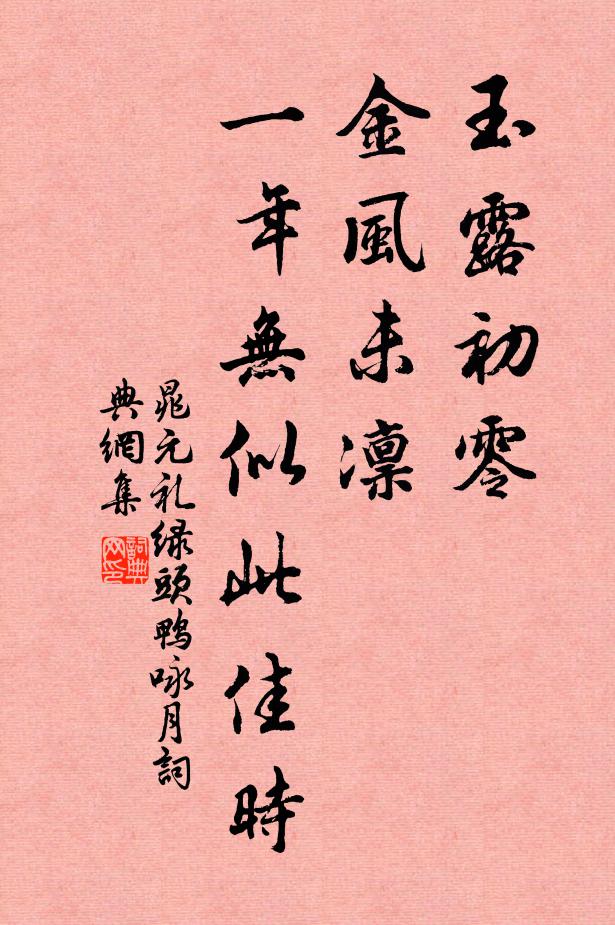 玉露初零
金風未凛
一年無似此佳時
晁元礼緑頭鴨咏月詞
典網集
詞典網印